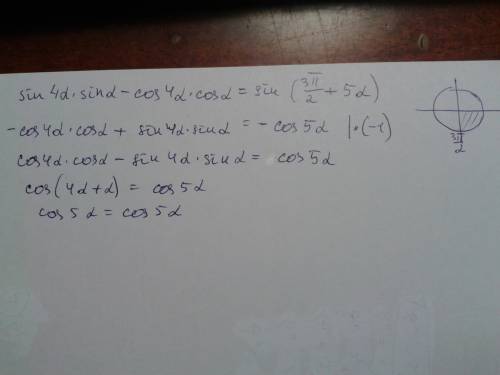 sin 4α · sinα - cos 4α · cosα = sin (3π/2 + 5α)
-cos 4α · cosα + sin 4α · sinα = - cos 5α | · (-1)
cos 4α · cosα - sin 4α · sinα = cos 5α
cos (4α + α) = cos 5α
cos 5α = cos 5α
3π/2